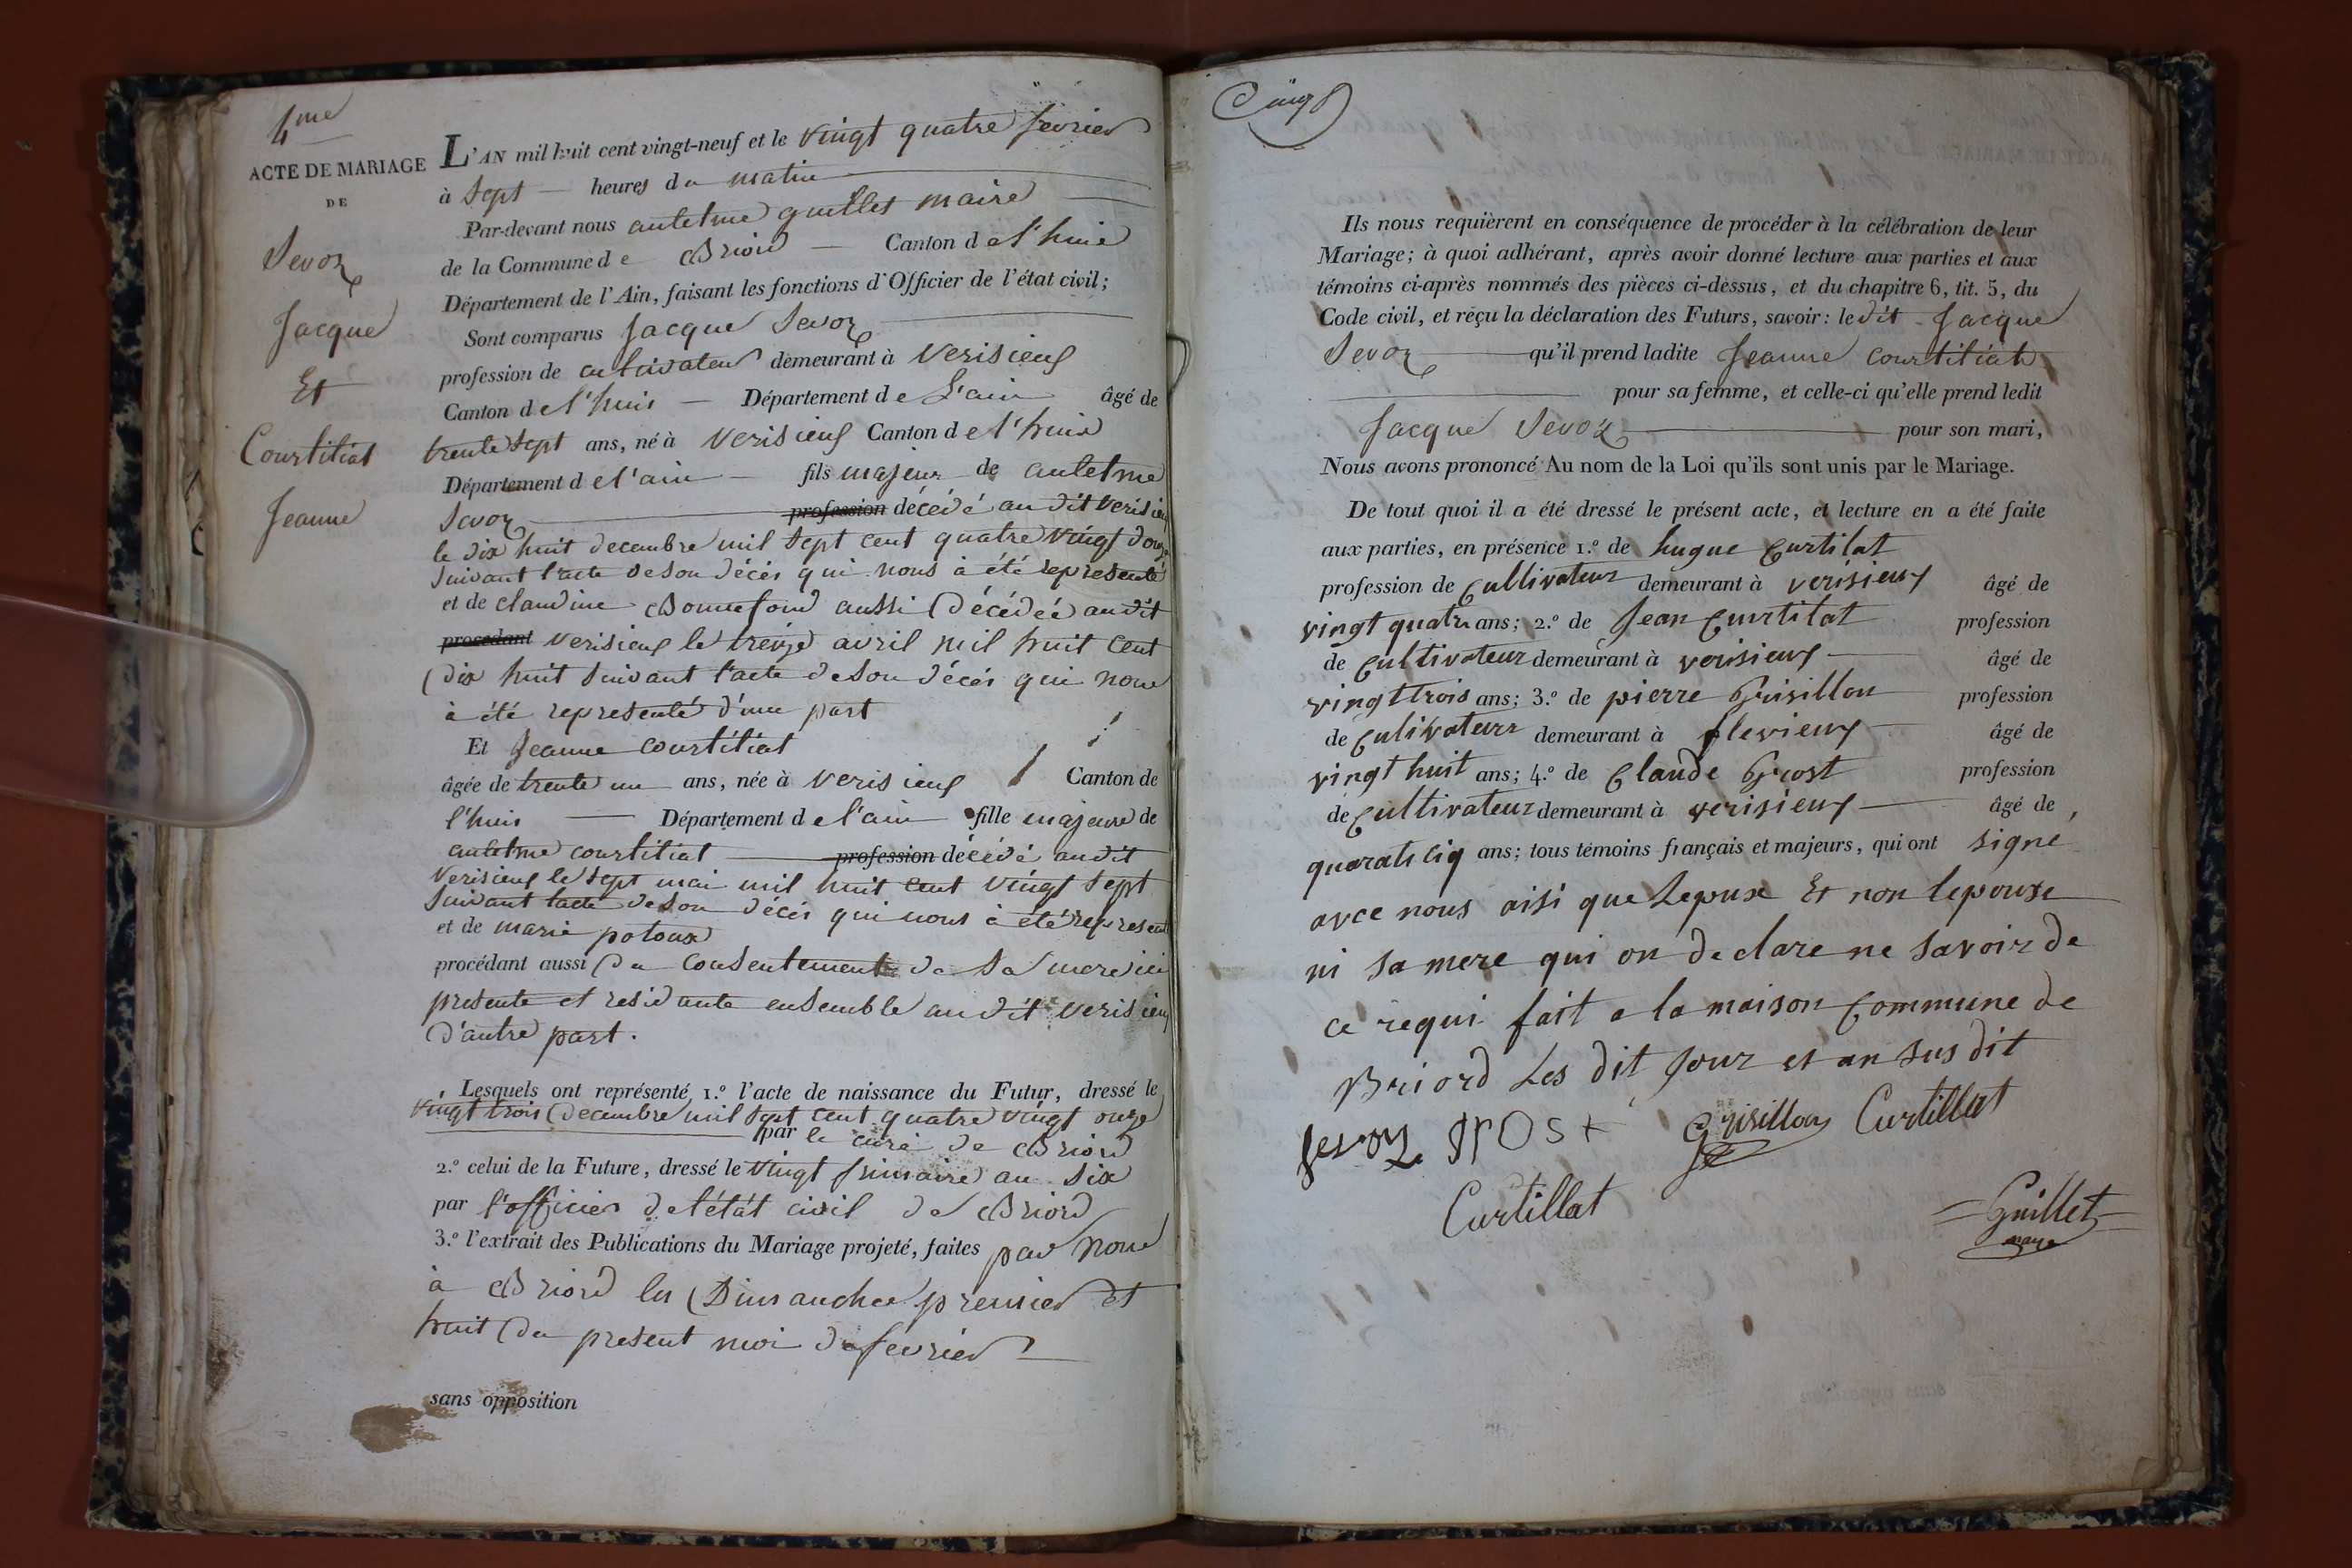 4me
ACTE DE MARIAGE
DE
Sevoz
Jacque
Et
Courtiliat
Jeanne
L'AN mil huit cent vingt-neuf et le vingt quatre fevrier
à sept heures du matin
Par-devant nous antelme guillet maire
de la Commune de Briord Canton de l'huis
Département de l'Ain, faisant les fonctions d'Officier de l'état civil;
Sont comparus Jacque Sevoz
profession de cultivateur demeurant à Verisieux
Canton de l'huis Département de L'ain âgé de
trente sept ans, né à Verisieux Canton de l'huis
Département de l'ain fils majeur de antelme
Sevoz profession décédé au dit verisieux
le dix huit decembre mil sept cent quatre vingt douze
suivant l'acte de son décès qui nous à été representé
et de claudine Bonnefond aussi décédée au dit
procedant verisieux le treize avril mil huit cent
dix huit suivant l'acte de son décès qui nous
à été representé d'une part
Et Jeanne courtiliat
âgée de trente un ans, née à Verisieux Canton de
l'huis Département de l'ain fille majeure de
antelme courtiliat profession décédé au dit
Verisieux le sept mai mil huit cent vingt sept
suivant l'acte de son décès qui nous à été represent
et de marie poloux
procédant aussi du consentement de sa mere ici
presente et residante ensemble au dit verisieux
d'autre part.
Lesquels ont représenté 1.º l'acte de naissance du Futur, dressé le
vingt trois decembre mil sept cent quatre vingt onze
par le curé de Briord
2.º celui de la Future, dressé le vingt frimaire an six
par l'officier de l'état civil de Briord
3.º l'extrait des Publications du Mariage projeté, faites par nous
à Briord les Dimanches premier et
huit du present moi de fevrier
sans opposition
Cinq
Ils nous requièrent en conséquence de procéder à la célébration de leur
Mariage; à quoi adhérant, après avoir donné lecture aux parties et aux
témoins ci-après nommés des pièces ci-dessus, et du chapitre 6, tit. 5, du
Code civil, et reçu la déclaration des Futurs, savoir: le dit Jacque
Sevoz qu'il prend ladite Jeanne courtiliat
pour sa femme, et celle-ci qu'elle prend ledit
Jacque Sevoz pour son mari,
Nous avons prononcé Au nom de la Loi qu'ils sont unis par le Mariage.
De tout quoi il a été dressé le présent acte, et lecture en a été faite
aux parties, en présence 1.º de hugue Curtilat
profession de Cultivateur demeurant à verisieux âgé de
vingt quatre ans; 2.º de Jean Curtilat profession
de Cultivateur demeurant à verisieux âgé de
vingt trois ans; 3.º de pierre Grisillon profession
de Cultivateur demeurant à flevieux âgé de
vingt huit ans; 4.º de Claude Grost profession
de Cultivateur demeurant à verisieux âgé de
quarate ciq ans; tous témoins français et majeurs, qui ont signé
avce nous aisi que Lepoux Et non lepouse
ni sa mere qui on declare ne savoir de
ce requi fait a la maison Commune de
Briord Les dit Jour et an sus dit
Sevoz grost Grisillon Curtillat
Curtillat
Guillet
maire